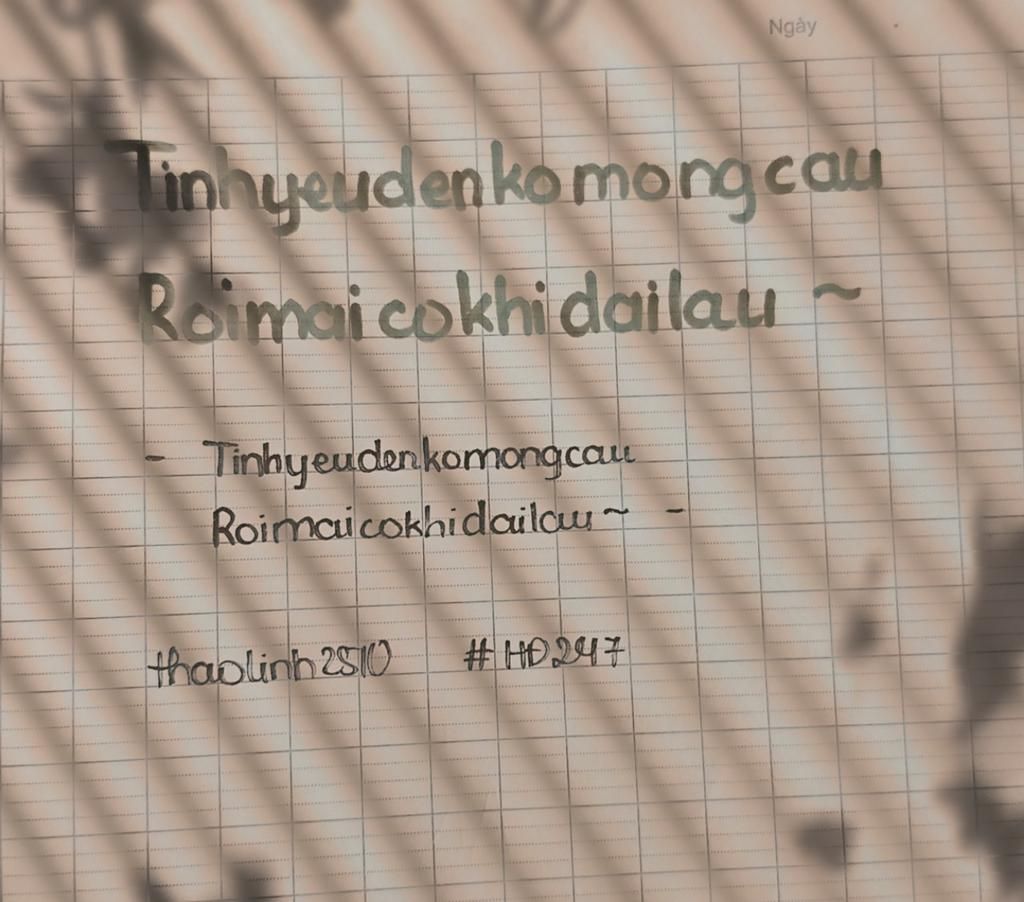 Ngày
Tinhyeudenkomongcau
Roimaicokhidailau ~
- Tinhyeudenkomongcau
Roimaicokhidailau ~ -
thaolinh2510 #HĐ247